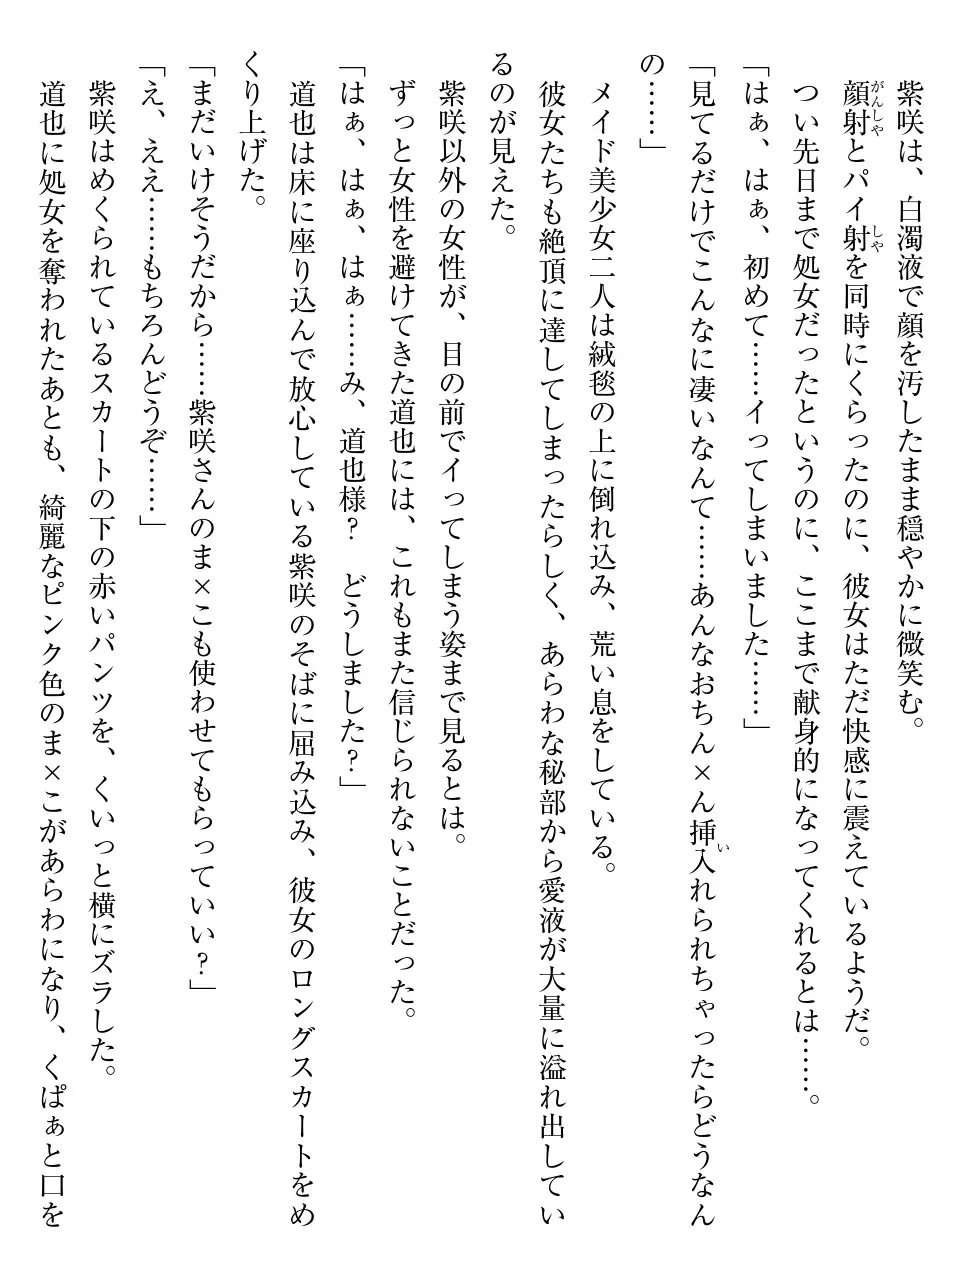 紫咲は、白濁液で顔を汚したまま穏やかに微笑む。
顔射とパイ射を同時にくらったのに、彼女はただ快感に震えているようだ。
つい先日まで処女だったというのに、ここまで献身的になってくれるとは……。
「はぁ、はぁ、初めて……イってしまいました……」
「見てるだけでこんなに凄いなんて……あんなおちん×ん挿入れられちゃったらどうなん
の……」
メイド美少女二人は絨毯の上に倒れ込み、荒い息をしている。
彼女たちも絶頂に達してしまったらしく、あらわな秘部から愛液が大量に溢れ出してい
るのが見えた。
紫咲以外の女性が、目の前でイってしまう姿まで見るとは。
ずっと女性を避けてきた道也には、これもまた信じられないことだった。
「はぁ、はぁ、はぁ……み、道也様?　どうしました?」
道也は床に座り込んで放心している紫咲のそばに屈み込み、彼女のロングスカートをめ
くり上げた。
「まだいけそうだから……紫咲さんのま×こも使わせてもらっていい?」
「え、ええ……もちろんどうぞ……」
紫咲はめくられているスカートの下の赤いパンツを、くいっと横にズラした。
道也に処女を奪われたあとも、綺麗なピンク色のま×こがあらわになり、くぱぁと口を